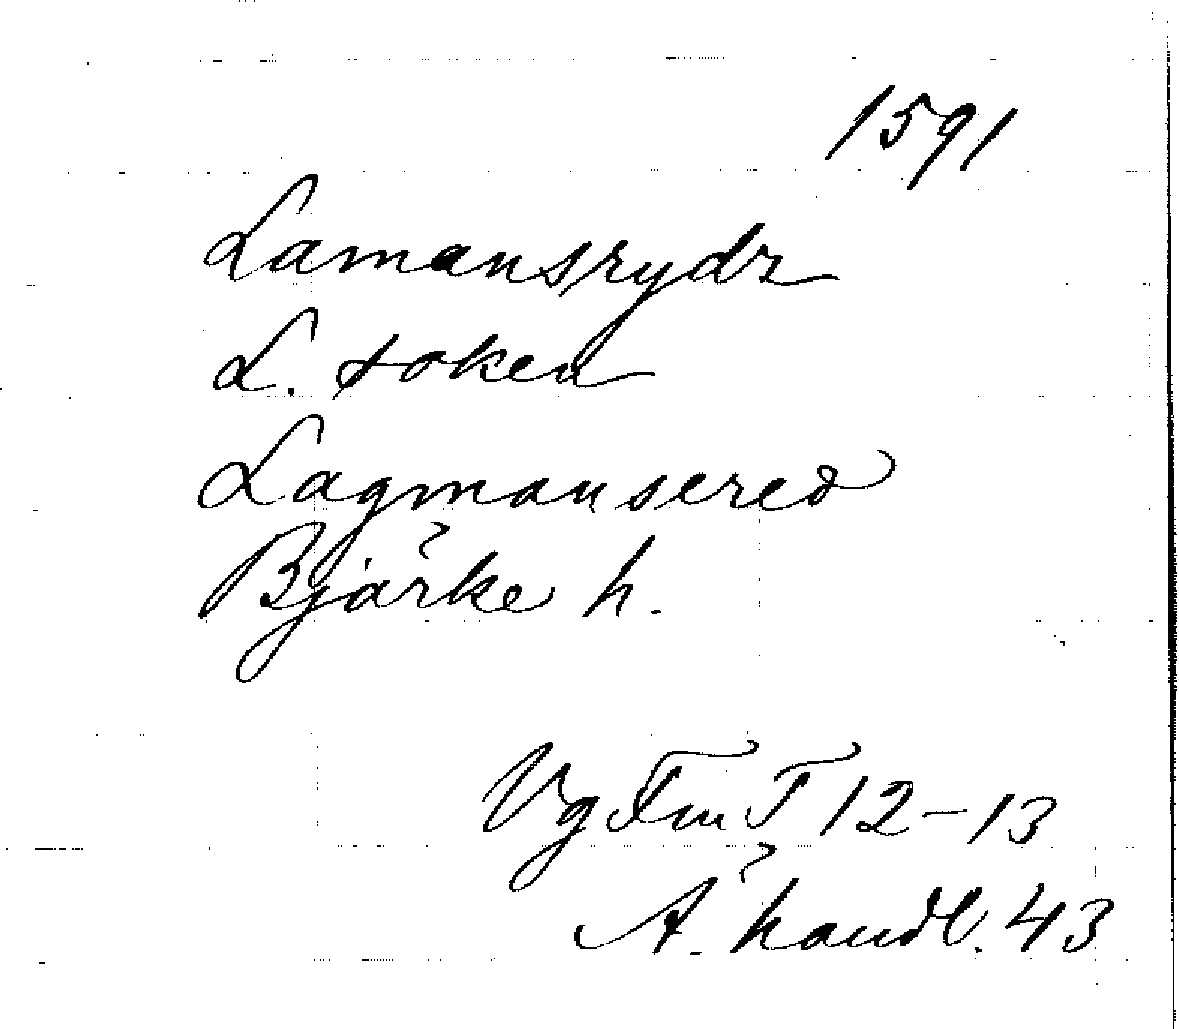 1591
Lamansrydz
L. soken
Lagmansered
Bjärke h.
VgFmT 12-13
Ä. handl. 43